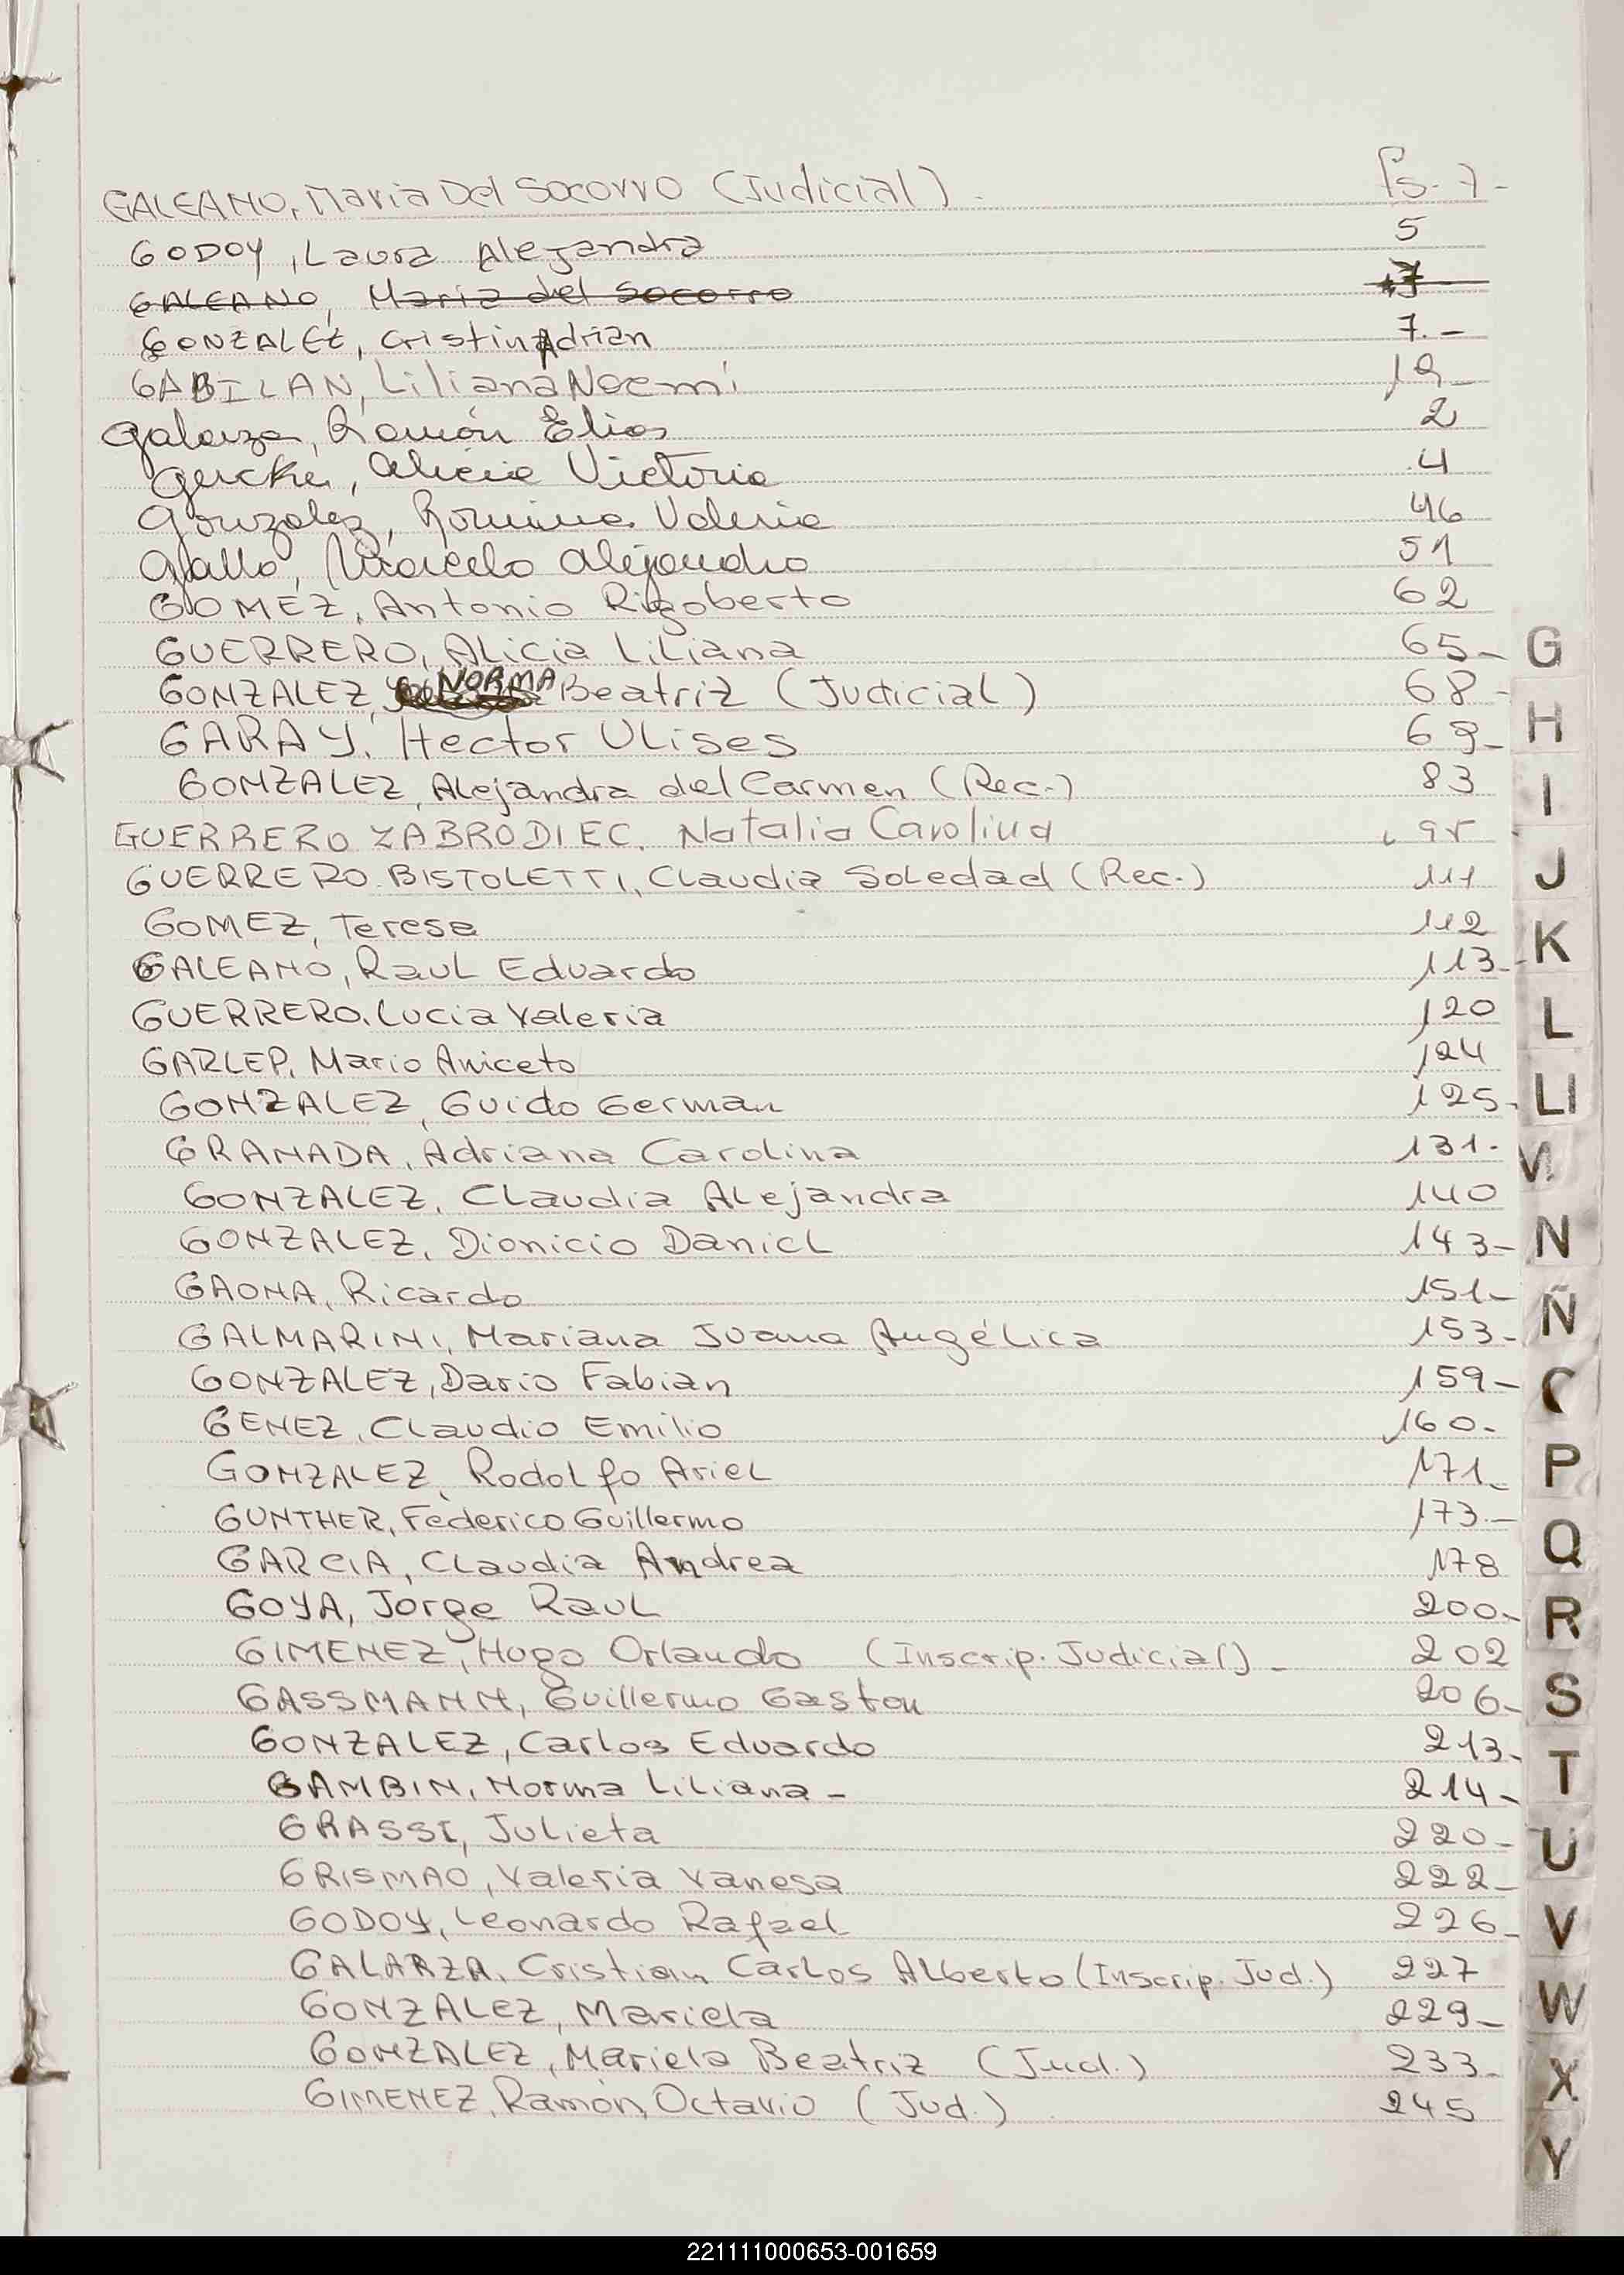 GALEANO, Maria Del Socorro (Judicial). Fs. 7-
GODOY, Laura Alejandra 5
GALEANO, Maria del Socorro 7
GONZALEZ, CristinAdrian 7.-
GABILAN, Liliana Noemi 19-
Galarza, Ramón Elias 2
Gercke, Alicia Victoria 4
Gonzalez, Romina Valeria 46
Gallo, Marcelo Alejandro 51
GOMEZ, Antonio Rigoberto 62
GUERRERO, Alicia Liliana 65-
GONZALEZ, NORMA Beatriz (Judicial) 68-
GARAY, Hector Ulises 69-
GONZALEZ, Alejandra del Carmen (Rec.) 83
GUERRERO ZABRODIEC, Natalia Carolina 95
GUERRERO BISTOLETTI, Claudia Soledad (Rec.) 111
GOMEZ, Teresa 112
GALEANO, Raul Eduardo 113-
GUERRERO, Lucia Valeria 120
GARLEP, Mario Aniceto 124
GONZALEZ, Guido German 125-
GRANADA, Adriana Carolina 131-
GONZALEZ, Claudia Alejandra 140
GONZALEZ, Dionicio Daniel 143-
GAONA, Ricardo 151-
GALMARINI, Mariana Juana Angélica 153-
GONZALEZ, Dario Fabian 159-
GENEZ, Claudio Emilio 160-
GONZALEZ, Rodolfo Ariel 171-
GUNTHER, Federico Guillermo 173-
GARCIA, Claudia Andrea 178
GOYA, Jorge Raul 200-
GIMENEZ, Hugo Orlando (Inscrip. Judicial)- 202
GASSMANN, Guillermo Gaston 206-
GONZALEZ, Carlos Eduardo 213-
GAMBIN, Norma Liliana- 214-
GRASSI, Julieta 220-
GRISMAO, Valeria Vanesa 222-
GODOY, Leonardo Rafael 226-
GALARZA, Cristian Carlos Alberto (Inscrip. Jud.) 227
GONZALEZ, Mariela 229-
GONZALEZ, Mariela Beatriz (Jud.) 233-
GIMENEZ, Ramón Octavio (Jud.) 245
G
H
I
J
K
L
Ll
N
Ñ
P
Q
R
S
T
U
V
W
X
Y
221111000653-001659